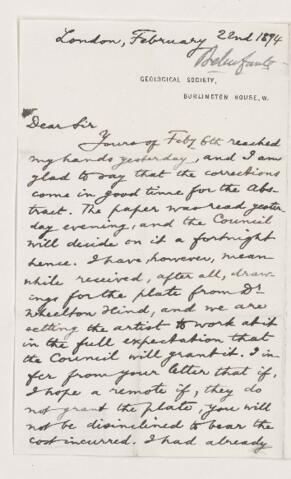 London, February 22nd 1894
Belinfante
GEOLOGICAL SOCIETY,
BURLINGTON HOUSE, W.
Dear Sir
Yours of Feby 6th reached
my hands yesterday, and I am
glad to say that the corrections
come in good time for the Abs-
tract. The paper was read yester-
day evening, and the Council
will decide on it a fortnight
hence. I have, however, mean-
while received, after all, draw-
ings for the plate from Dr
Wheelton Hind, and we are
setting the artist to work at it
in the full expectation that
the Council will grant it. I in-
fer from your letter that if,
I hope a remote if, they do
not grant the plate, you will
not be disinclined to bear the
cost incurred. I had already